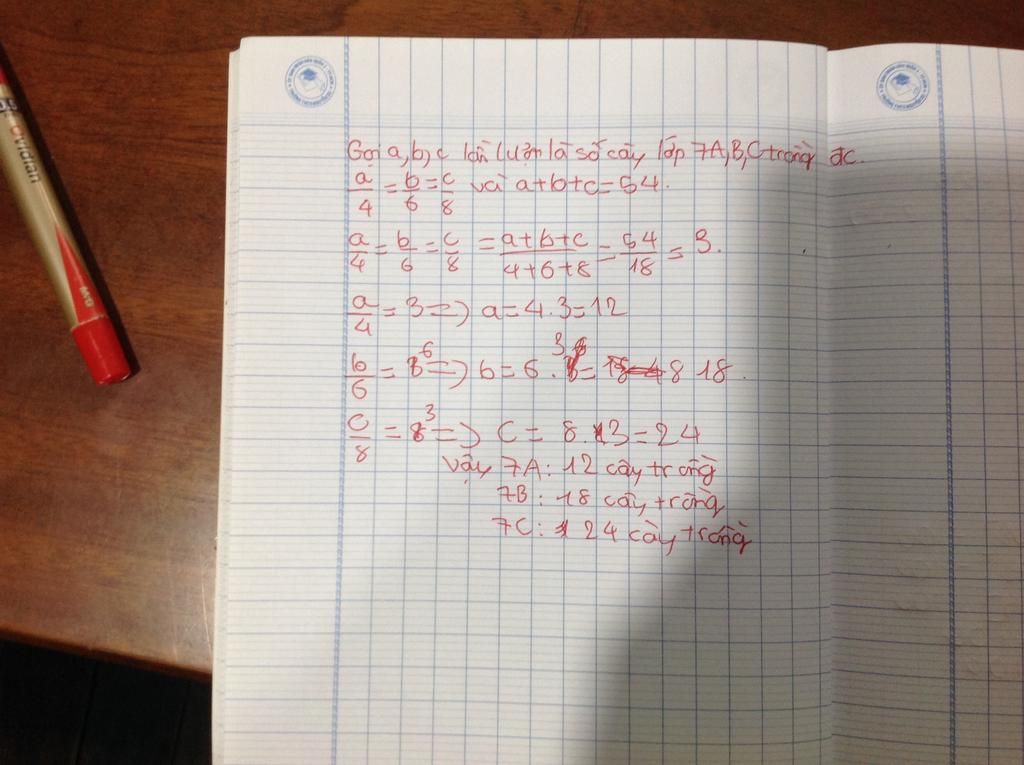 Gọi a,b,c lần lượt là số cây lớp 7A,B,C trồng đc.
a/4 = b/6 = c/8 và a+b+c=54.
a/4 = b/6 = c/8 = a+b+c/4+6+8 = 54/18 = 3.
a/4 = 3 => a=4.3=12
b/6 = 6 => b=6.3= 18.
c/8 = 3 => C= 8.3=24
Vậy 7A: 12 cây trồng
7B: 18 cây trồng
7C: 24 cây trồng
Ovidian